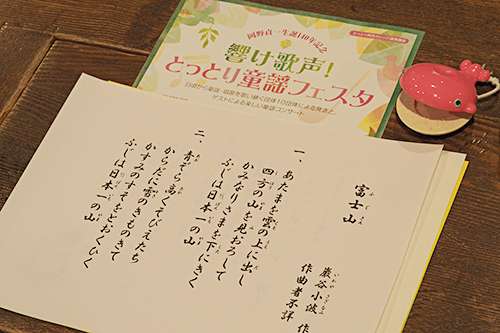 岡野貞一生誕140年記念
響け歌声！
とっとり童謡フェスタ
ゲストによる楽しい童謡コンサート
富士山
巌谷小波 作
作曲者不詳
一、
あたまを雲の上に出し
四方の山を見おろして
かみなりさまを下にきく
ふじは日本一の山
二、
青ぞら高くそびえたち
からだに雪のきものきて
かすみのすそをとおくひく
ふじは日本一の山